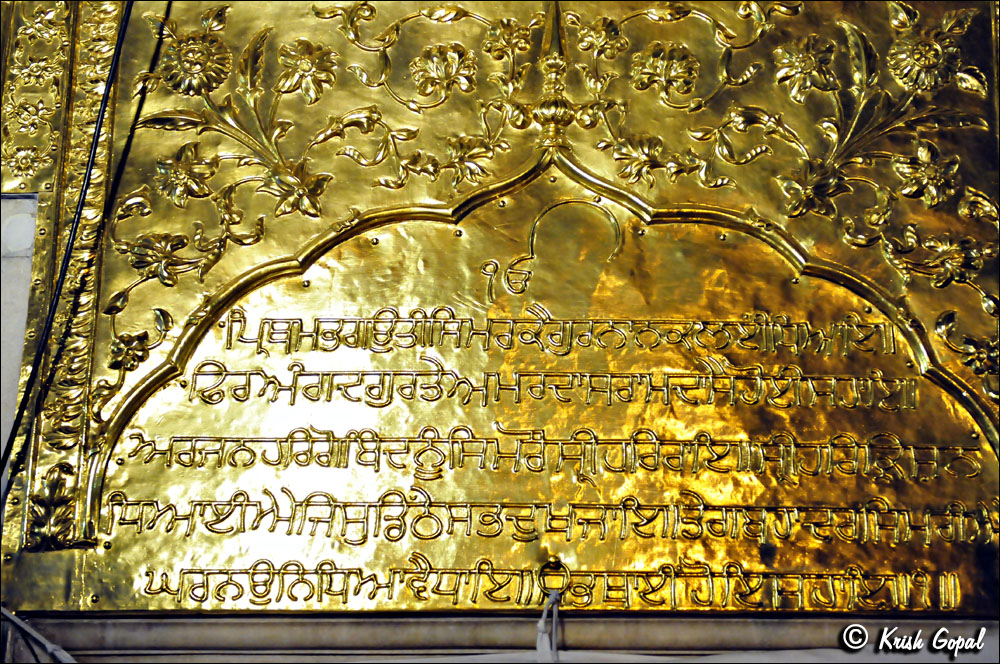 ੴ
ਪ੍ਰਿਥਮ ਭਗਉਤੀ ਸਿਮਰਕੈ ਗੁਰ ਨਾਨਕ ਲਈਂ ਧਿਆਇ॥
ਫਿਰ ਅੰਗਦ ਗੁਰ ਤੇ ਅਮਰਦਾਸ ਰਾਮਦਾਸੈ ਹੋਈ ਸਹਾਇ॥
ਅਰਜਨ ਹਰਿਗੋਬਿੰਦ ਨੂੰ ਸਿਮਰੋ ਸ੍ਰੀ ਹਰਿਰਾਇ॥ ਸ੍ਰੀ ਹਰਿਕ੍ਰਿਸ਼ਨ
ਧਿਆਈਐ ਜਿਸੁ ਡਿੱਠੇ ਸਭ ਦੁਖ ਜਾਇ॥ ਤੇਗ ਬਹਾਦਰ ਸਿਮਰੀਐ
ਘਰ ਨਉ ਨਿਧਿ ਆਵੈ ਧਾਇ॥ ਸਭ ਥਾਈਂ ਹੋਇ ਸਹਾਇ॥੧॥
© Krish Gopal